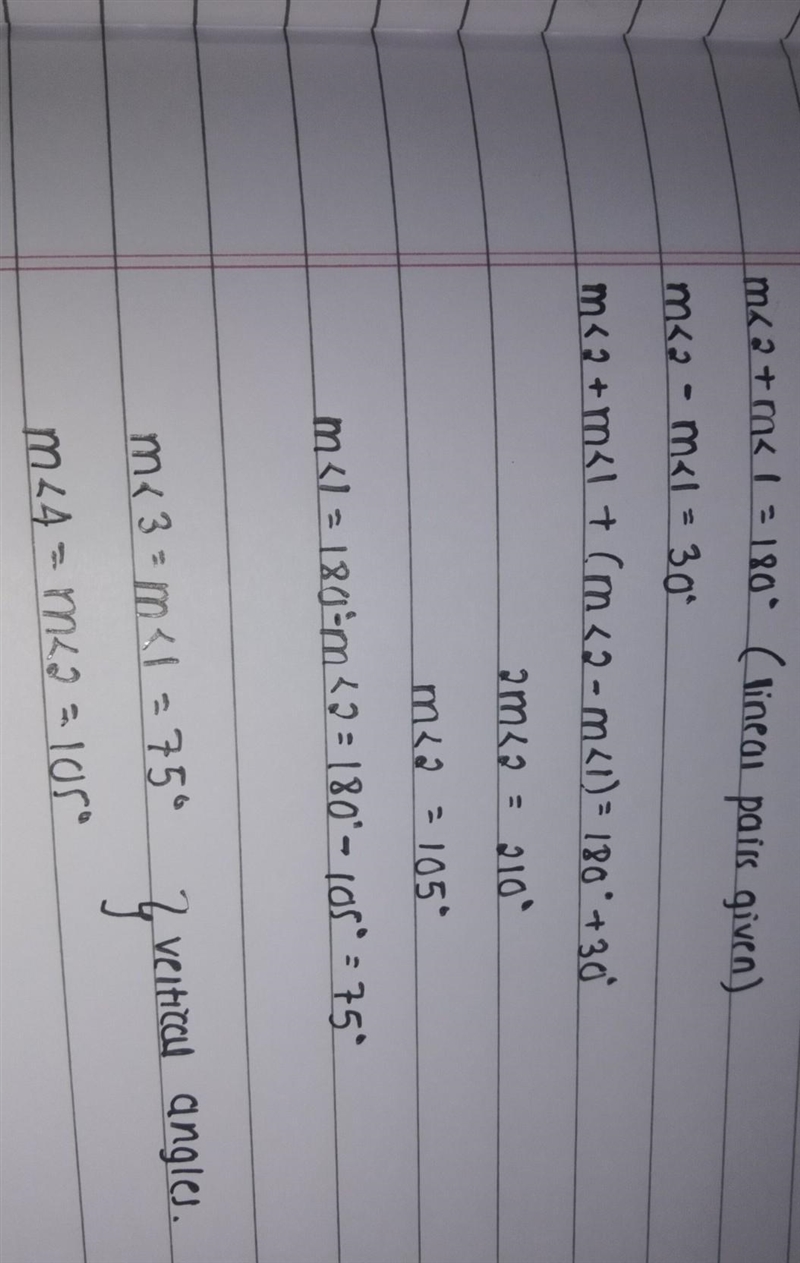 m<2 + m<1 = 180° (linear pairs given)
m<2 - m<1 = 30°
m<2 + m<1 + (m<2 - m<1) = 180° + 30°
2m<2 = 210°
m<2 = 105°
m<1 = 180° - m<2 = 180° - 105° = 75°
m<3 = m<1 = 75° } vertical angles.
m<4 = m<2 = 105°